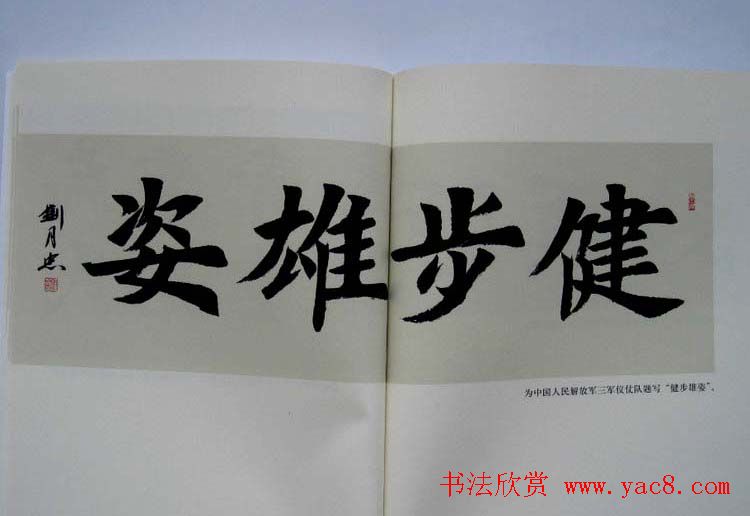 健步雄姿
劉月忠
为中国人民解放军三军仪仗队题写“健步雄姿”、
书法欣赏 www.yac8.com